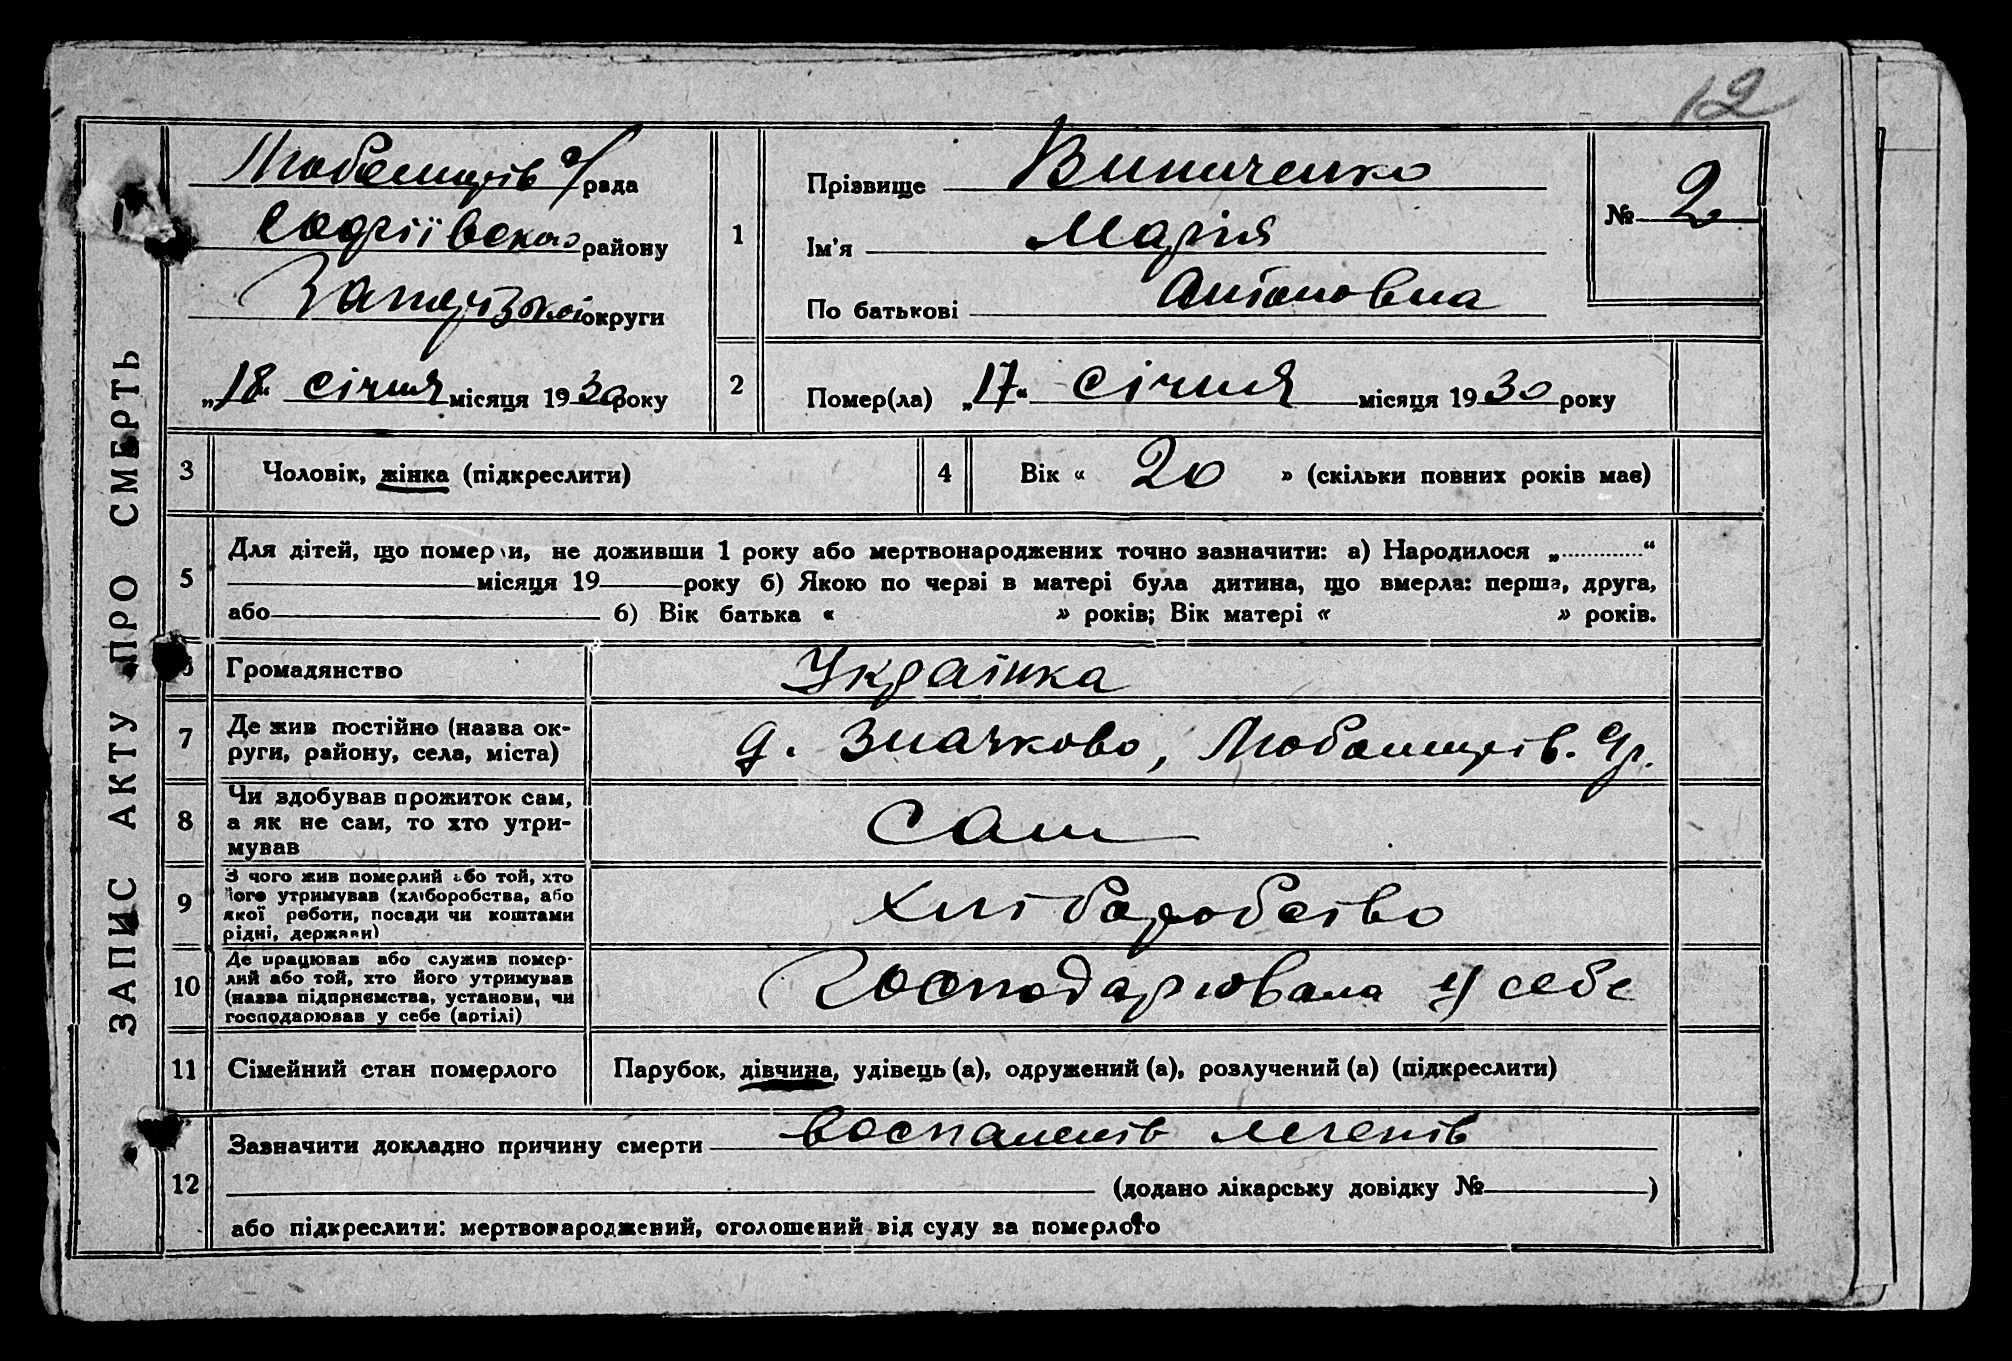 12
ЗАПИС АКТУ ПРО СМЕРТЬ
рада
Софіївского району
округи
„18“ січня місяця 1930 року
1
Прізвище Винниченко
Ім'я Марія
По батькові Антоновна
№ 2
2
Помер(ла) „17“ січня місяця 1930 року
3
Чоловік, жінка (підкреслити)
4
Вік « 20 » (скільки повних років має)
5
Для дітей, що померли, не доживши 1 року або мертвонароджених точно зазначити: а) Народилося „ “
місяця 19 року б) Якою по черзі в матері була дитина, що вмерла: перша, друга,
або б) Вік батька « » років; Вік матері « » років.
6
Громадянство
Українка
7
Де жив постійно (назва ок-
руги, району, села, міста)
д. Значково,
8
Чи здобував прожиток сам,
а як не сам, то хто утри-
мував
Сам
9
З чого жив померлий або той, хто
його утримував (хліборобства, або
якої роботи, посади чи коштами
рідні, держави)
хліборобство
10
Де працював або служив помер-
лий або той, хто його утримував
(назва підприємства, установи, чи
господарював у себе (артілі)
Господарювала у себе
11
Сімейний стан померлого
Парубок, дівчина, удівець (а), одружений (а), розлучений (а) (підкреслити)
12
Зазначити докладно причину смерти воспаленів легенів
(додано лікарську довідку № )
або підкреслити: мертвонароджений, оголошений від суду за померлого